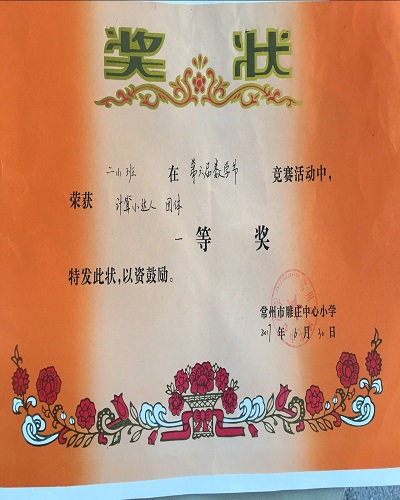 奖 状
二(1)班 在 第六届数学节 竞赛活动中,
荣获 计算小达人 团体
一 等 奖
特发此状,以资鼓励。
常州市雕庄中心小学
2017 年 6 月 30 日